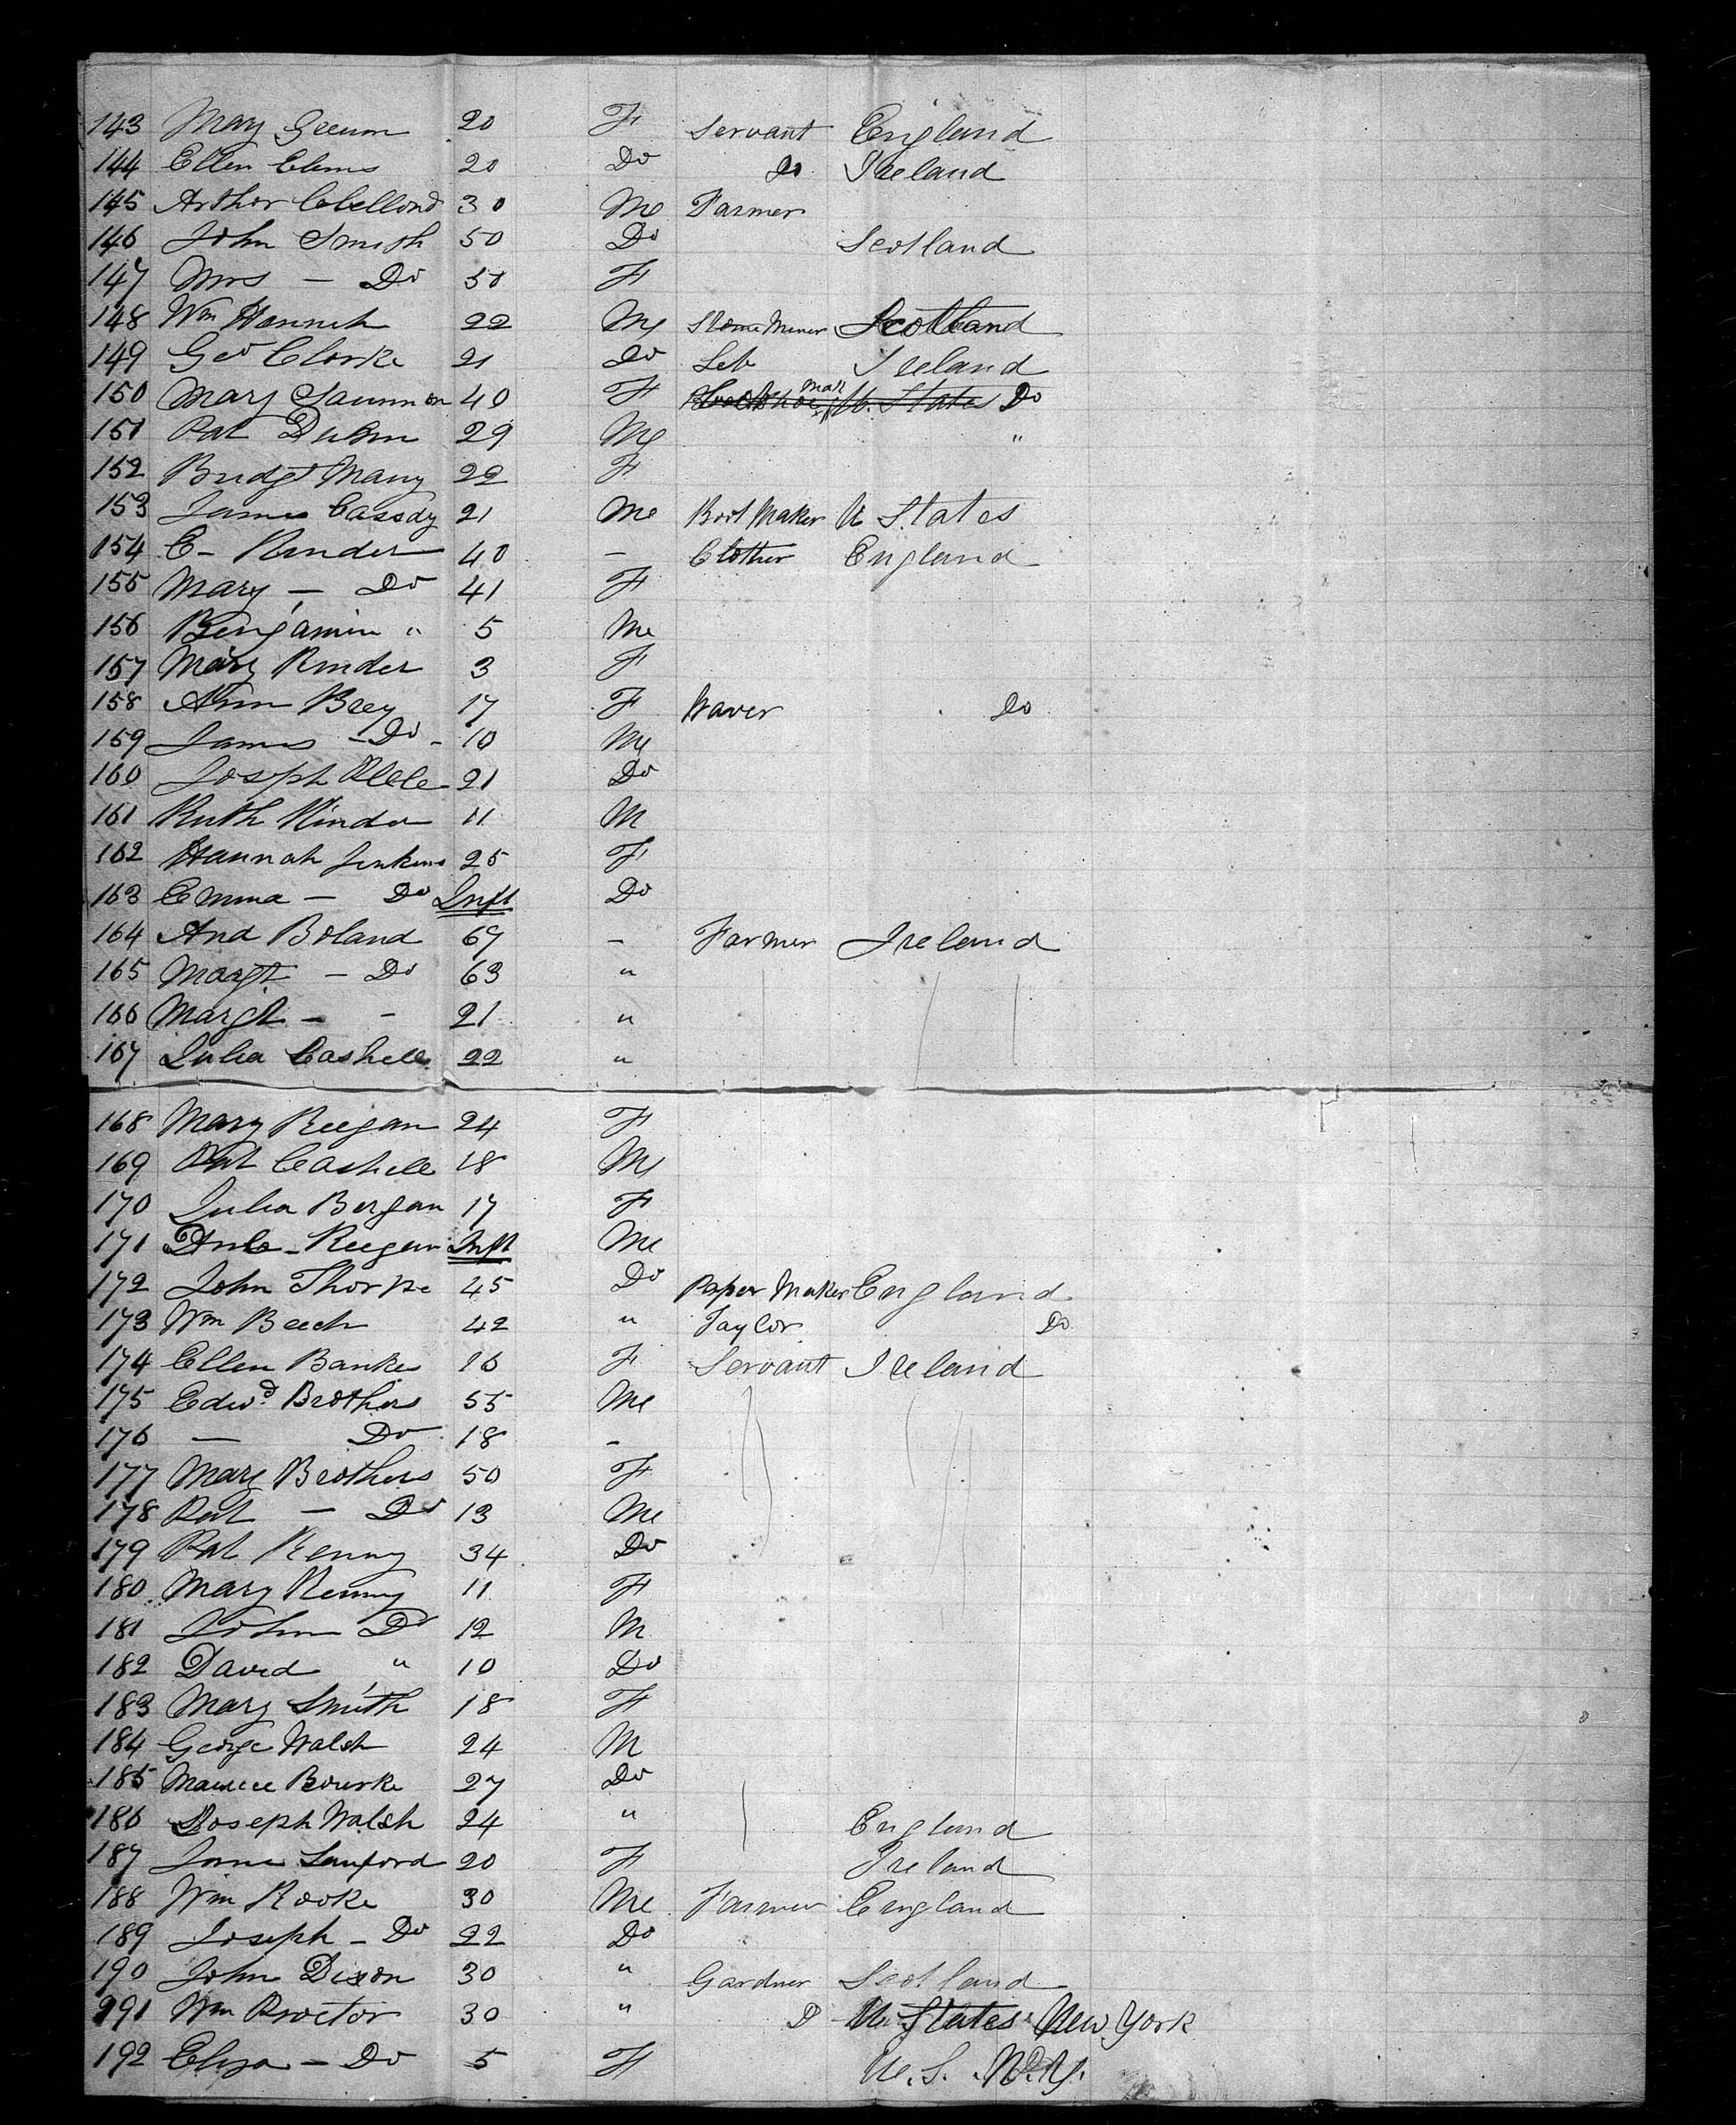 143 Mary Greum 20 F Servant England
144 Ellen Clums 20 Do Do Ireland
145 Arthor 30 Me Farmer
146 John Smith 50 Do Scotland
147 Mrs — Do 50 F
148 Wm Hannah 22 Me Stone Miner Scotland
149 Geo Clorke 21 Do Lab Ireland
150 Mary 40 F man U. States Do
151 Pat 29 Me "
152 Bridgt Many 22 F
153 James Cassdy 21 Me Boot Maker U States
154 C- Rinder 40 — Clother England
155 Mary — Do 41 F
156 Bengamin " 5 Me
157 Mary Rinder 3 F
158 Ann Brey 17 F Waver Do
159 James - Do - 10 Me
160 Joseph 21 Do
161 Ruth Rinder 11 M
162 Hannah Jenkins 25 F
163 Emma — Do Inft Do
164 And Boland 67 — Farmer Ireland
165 Margt — Do 63 "
166 Margt — - 21 "
167 Julia Cashell 22 "
168 Mary Reegan 24 F
169 Pat Cashell 18 Me
170 Julia Bergan 17 F
171 - Reegan Inft Me
172 John Thorpe 45 Do Paper Maker England
173 Wm Beech 42 " Taylor Do
174 Ellen Banks 16 F Servant Ireland
175 Edwd Brothers 55 Me
176 — Do 18 -
177 Mary Brothers 50 F
178 Pat — Do 13 Me
179 Pat Kenny 34 Do
180 Mary Kenny 11 F
181 John Do 12 M
182 David " 10 Do
183 Mary Smith 18 F
184 George Walsh 24 M
185 Maurice Bourke 27 Do
186 Joseph Walsh 24 " England
187 Jane Sanford 20 F Ireland
188 Wm Rooke 30 Me Farmer England
189 Joseph - Do 22 Do
190 John Dixon 30 " Gardner Scotland
191 Wm Proctor 30 " D U. States New York
192 Eliza — Do 5 F U. S. N.Y.